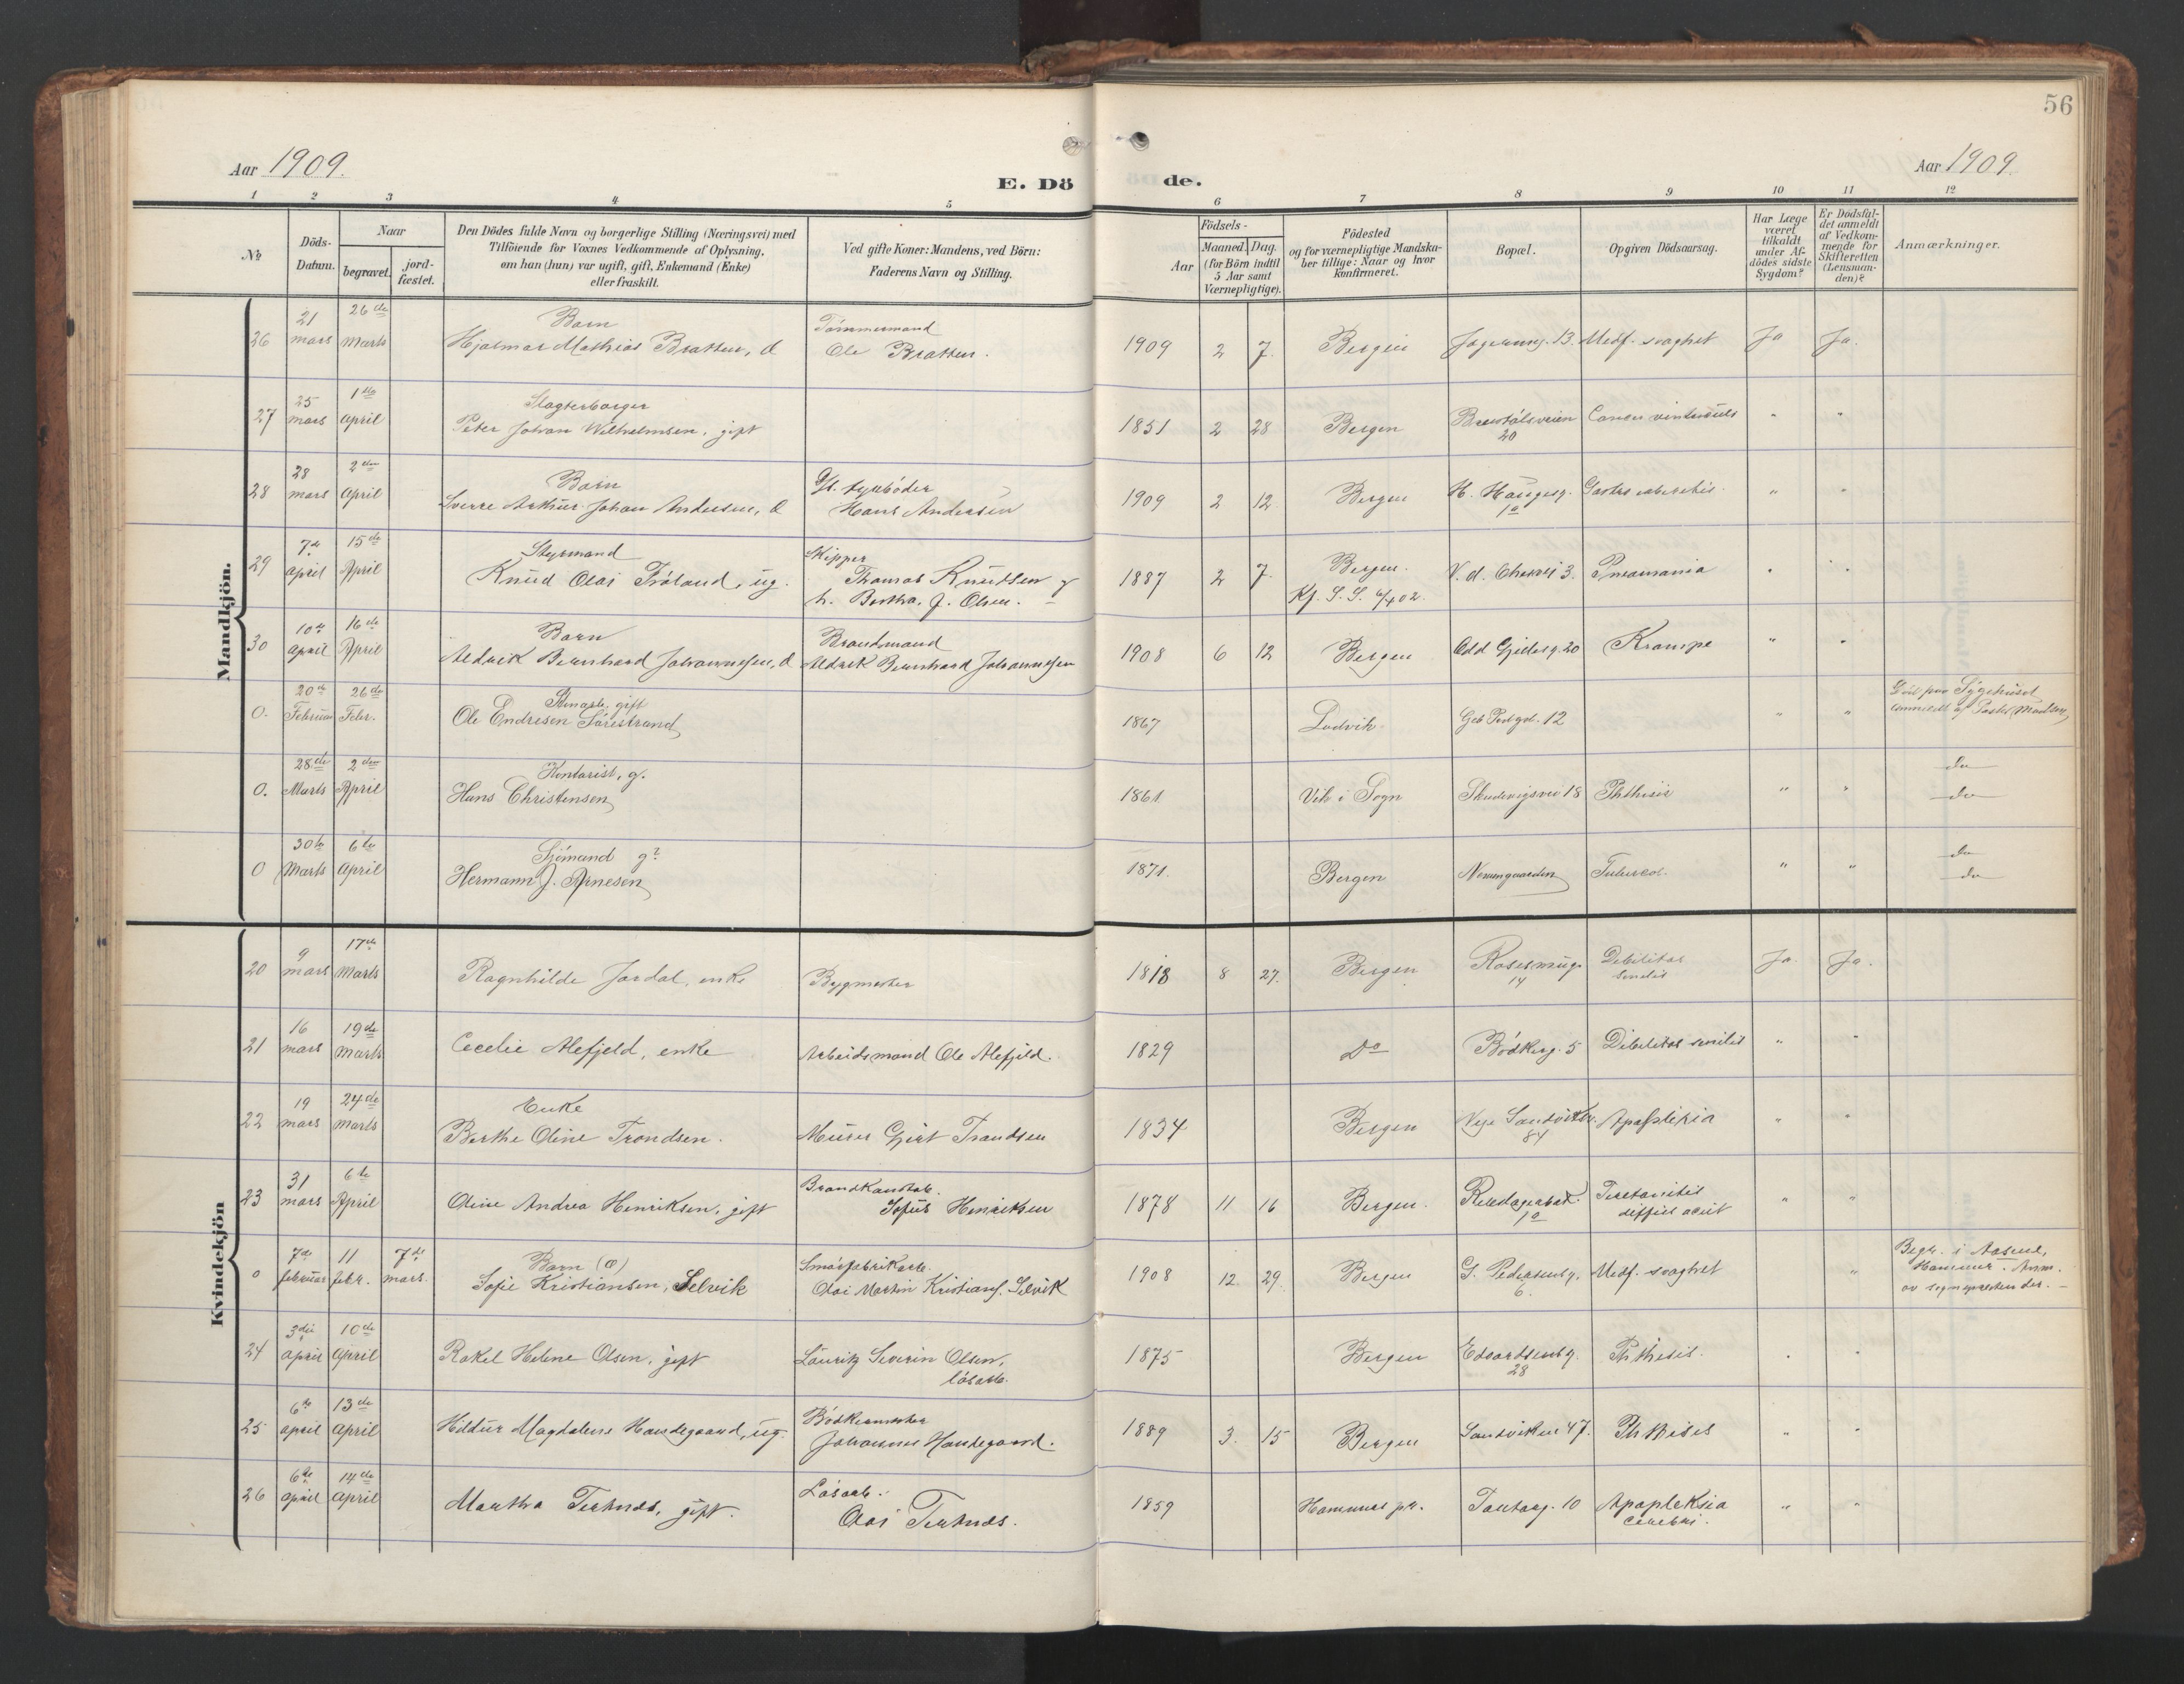 56
Aar 1909.
E. Dö
de.
Aar 1909.
1 2 3 4 5 6 7 8 9 10 11 12
№
Döds-
Datum.
Naar
begravet.
jord-
fæstet.
Den Dödes fulde Navn og borgerlige Stilling (Næringsvei) med
Tilföiende for Voxnes Vedkommende af Oplysning,
om han (hun) var ugift, gift, Enkemand (Enke)
eller fraskilt.
Ved gifte Koner: Mandens, ved Börn:
Faderens Navn og Stilling.
Födsels-
Aar
Maaned. Dag.
(for Börn indtil
5 Aar samt
Værnepligtige).
Födested
og for værnepligtige Mandska-
ber tillige: Naar og hvor
konfirmeret.
Bopæl.
Opgiven Dödsaarsag.
Har Læge
været
tilkaldt
under Af-
dödes sidste
Sygdom?
Er Dödsfal-
det anmeldt
af Vedkom-
mende for
Skifteretten
(Lensman-
den)?
Anmærkninger.
Mandkjön.
26 21 mars 26de Marts Barn
Hjalmar Mathias Bratten, d Tömmermand
Ole Bratten. 1909 2 7. Bergen 13. Medf. svaghet Ja Ja.
27 25 mars 1ste April Slagterborger
Peter Johan Wilhelmsen, gift 1851 2 28 Bergen 20 Cancer " "
28 28 mars 2den April Barn
Sverre Arthur Johan Andersen, d
Hans Andersen 1909 2 12 Bergen H. Haugesg.
1a " "
29 7de april 15de April Styrmand
Knud Olai Fröland, ug. Skipper
Thomas Knudsen og
h. Bertha J. Olsen. 1887 2 7. Bergen.
Kf. S. S. 6/4 02. 3. Pneumonia " "
30 10de april 16de April Barn
Aldrik Bernhard Johannesen, d Brandmand
Aldrik Bernhard Johannesen 1908 6 12 Bergen Odd Gjelesg. 20 Krampe " "
0. 20de Februar 26de Febr. Stenarb. gift
Ole Endresen Sörestrand 1867 Ladvik 12 " " Död paa Sygehuset
anmeldt af Pastor Madsen
0. 28de Marts 2den April Kontorist, g.
Hans Christensen 1861 Vik i Sogn Skudevigsvei 18 Phthisis " " do
do
0 30te Marts 6te April Sjömand g?
Hermann J. Arnesen 1871. Bergen Nemmgaarden Tubercol. " " do
do
Kvindekjön
20 9 mars 17de Marts Ragnhilde Jordal, enke Bygmester 1818 8 27. Bergen Rosesmug
14 Debilitas
senilis Ja. Ja.
21 16 mars 19de Marts Cecelie Alefjeld, enke Arbeidsmand Ole Alefjeld. 1829 Do Bödkerg. 5 Debilitas senilis " "
22 19 mars 24de Marts Enke
Berthe Oline Trondsen. Murer Gjert Trondsen 1834 Bergen Nye Sandviksv.
84 Apoplexia " "
23 31 mars 6te April Oline Andrea Henriksen, gift Brandkonstab.
Sofus Henriksen 1878 11 16 Bergen.
1a Peretonitis
acut " "
0 7de februar 11 febr. 7de mars. Barn
Sofie Kristiansen, Selvik Smörfabrikarb.
Olai Martin Kristians. Selvik 1908 12. 29. Bergen G. Pedersensg.
6. Medf. svaghet " Begr. i Aasene,
Hammer. Anm.
av sognepresten der. —
24 3die april 10de April Rakel Helene Olsen, gift Lauritz Severin Olsen,
lösarb. 1875 Bergen Edvardsensg.
28 Phthisis. " "
25 6te april 13de April Hildur Magdalene Haudegaard, ug. Bödkermester
Johannes Haudegaard. 1889 3. 15 Bergen Sandviken 47. Phthisis " "
26 6te april 14de April Martha Tertnes, gift. Lösarb.
Olai Tertnes. 1859 Hammer pr. 10 Apopleksia
cerebri. " "